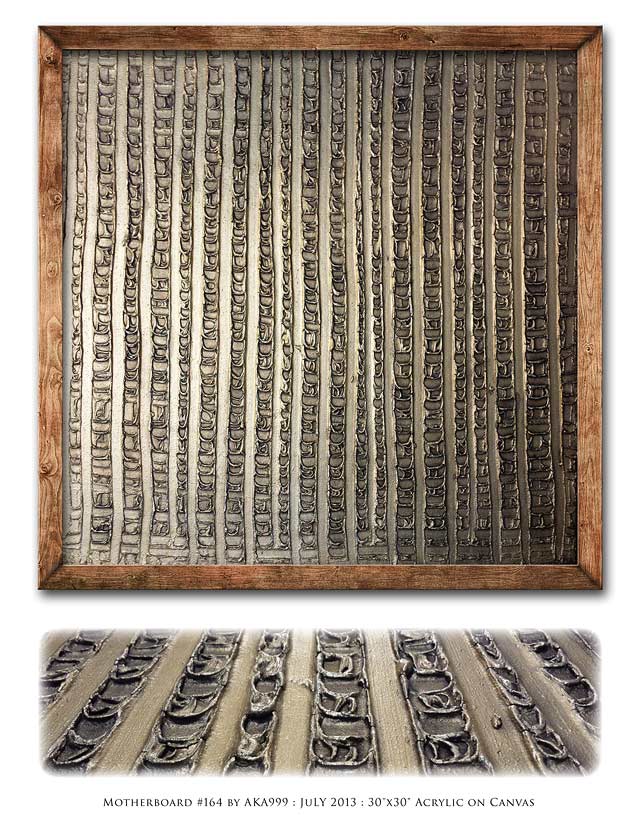 Motherboard #164 by AKA999 : JuLY 2013 : 30"x30" Acrylic on Canvas